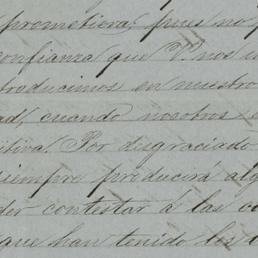 prometiera; pues no p
confianza que V. nos
troducimos en nuestro
ad, cuando nosotros e
itiva. Por desgraciado
siempre producirá alg
der contestar a las co
que han tenido los